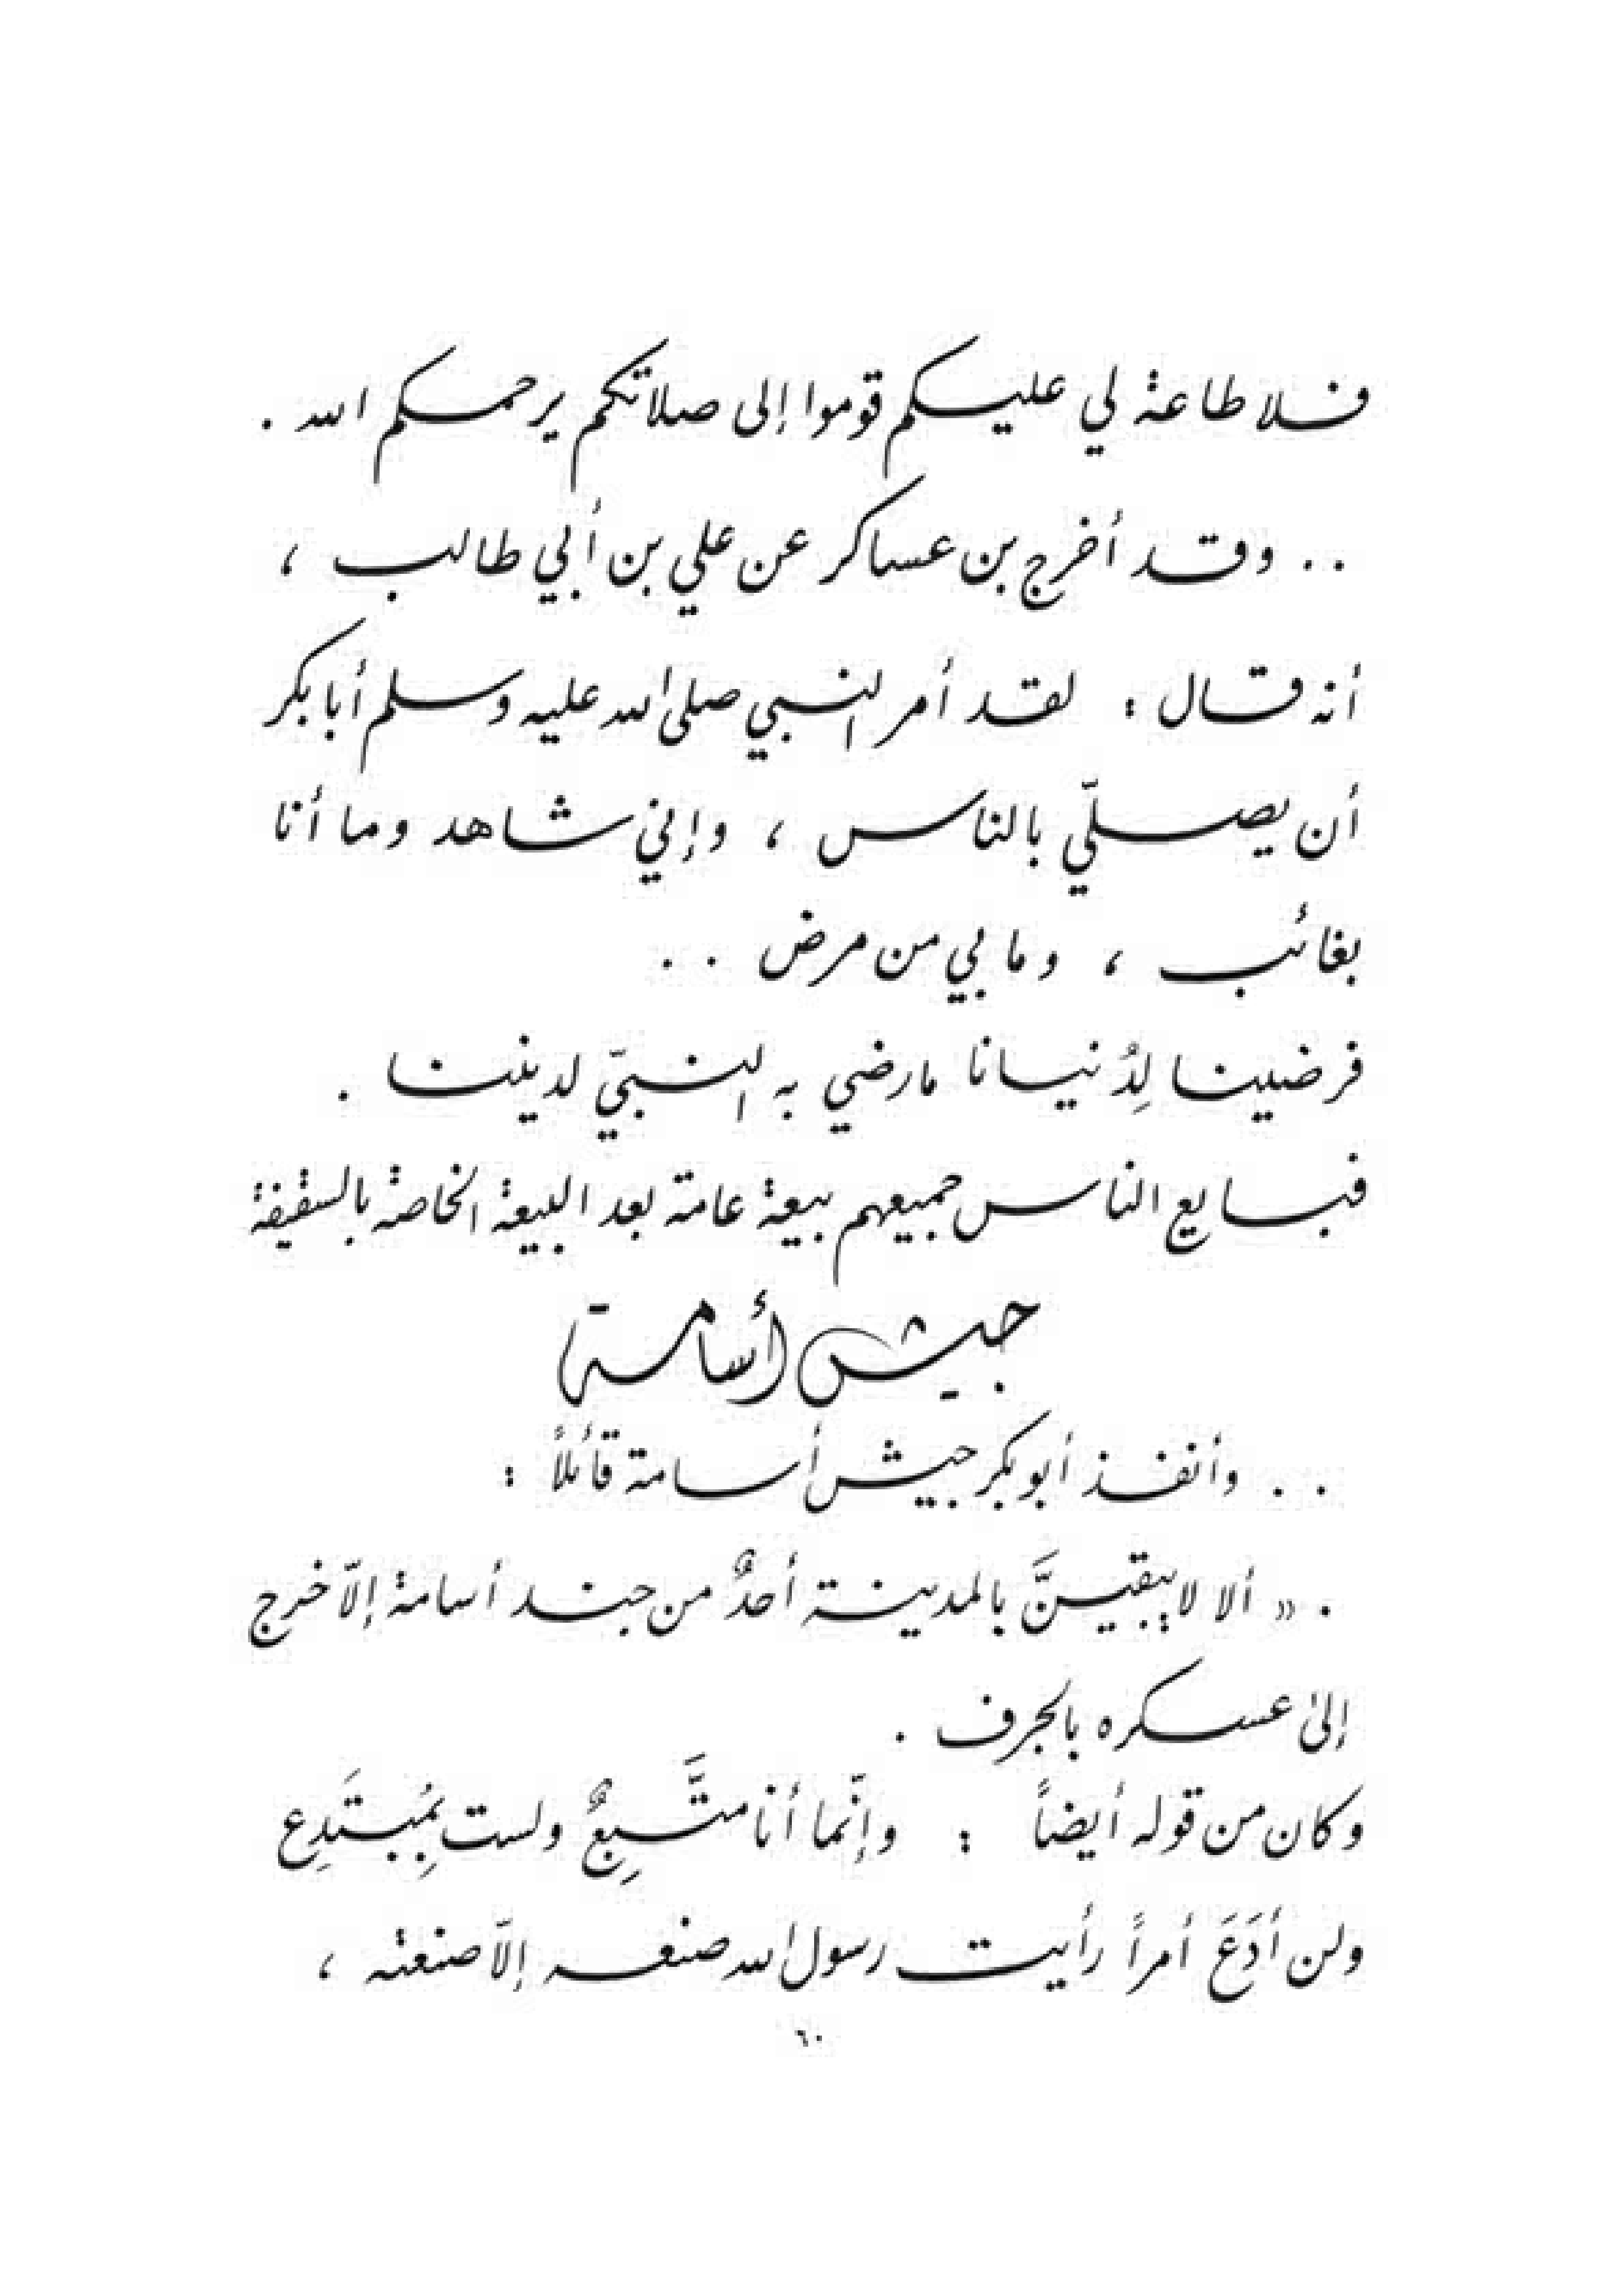 فلا طاعة لي عليكم قوموا إلى صلاتكم يرحمكم الله .
.. وقد أخرج بن عساكر عن علي بن أبي طالب ،
أنه قال : لقد أمر النبي صلى الله عليه وسلم أبا بكر
أن يصلّي بالناس ، وإني شاهد وما أنا
بغائب ، وما بي من مرض ..
فرضينا لِدُنيانا ما رضي به النبيّ لديننا .
فبايع الناس جميعهم بيعة عامة بعد البيعة الخاصة بالسقيفة
جيش أسامة
.. وأنفذ أبو بكر جيش أسامة قائلاً :
. « ألا لا يبقينَّ بالمدينة أحدٌ من جند أسامة إلاّ خرج
إلى عسكره بالجرف .
وكان من قوله أيضاً : وإنّما أنا متَّبِعٌ ولست بِمُبتَدِع
ولن أدَعَ أمراً رأيت رسول الله صنعه إلاّ صنعته ،
٦٠